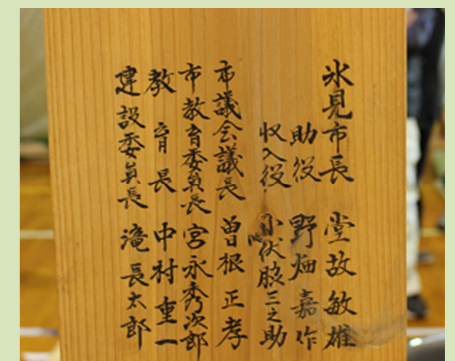 氷見市長 堂故敏雄
助役 野畑嘉作
収入役 小伏脇三之助
市議会議長 曽根正孝
市教育委員長 宮永秀次郎
教育長 中村重一
建設委員長 滝長太郎